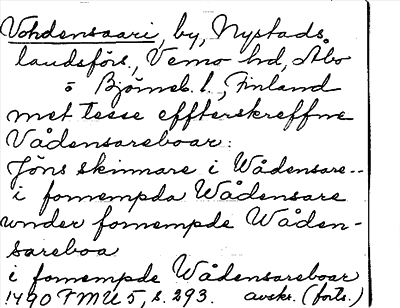 Vohdensaari, by, Nystads
landsförs., Vemo hd, Åbo
o Björneb. l., Finland
met tesse effterskreffne
Vådensareboar:
Jöns skinnare i Wådensare--
i fornempda Wådensare
wnder fornempde Wåden-
sareboa
i fornempde Wådensareboar
1490 FMU 5, s. 293. avskr. (forts.)